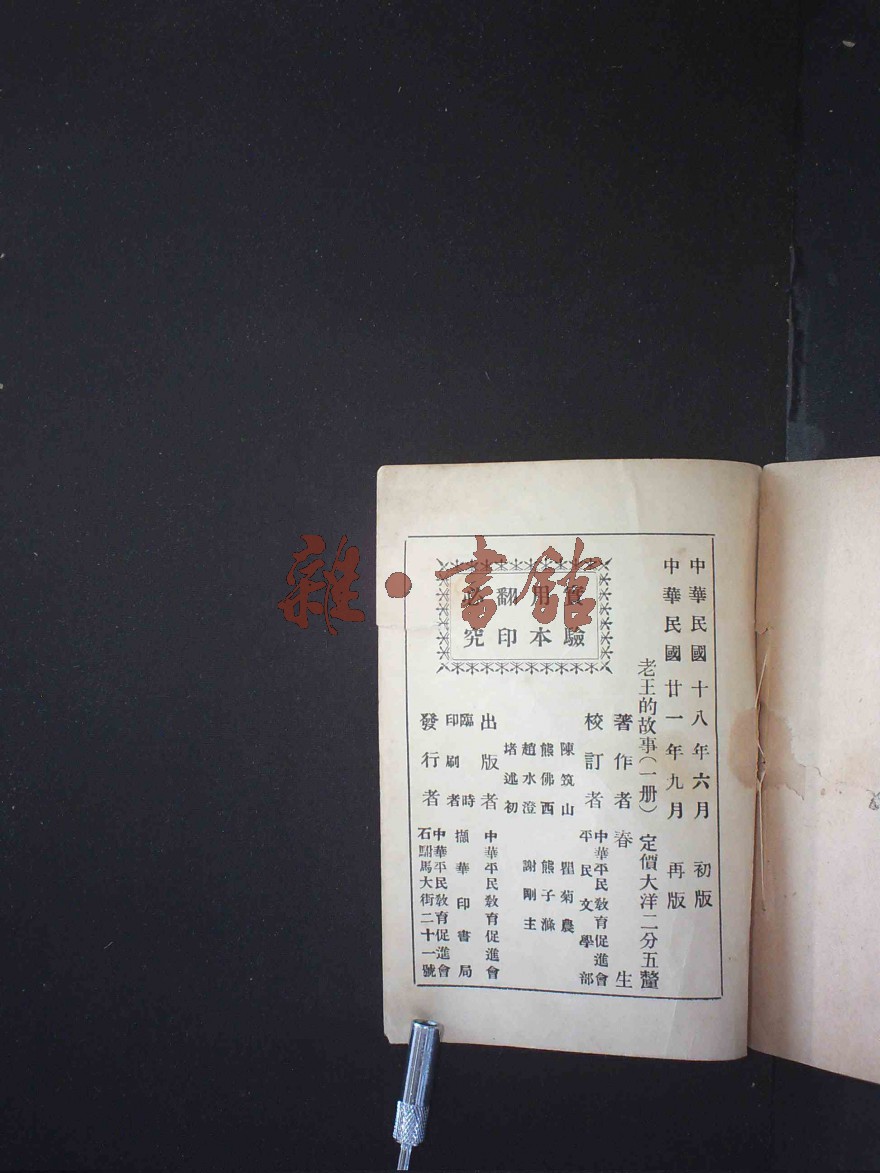 中華民國十八年六月　初版
中華民國廿一年九月　再版
老王的故事（一册）　定價大洋二分五釐
著作者　春生
校訂者　中華平民教育促進會
平民文學部
陳筑山　瞿菊農
熊佛西　熊子滌
趙水澄　謝剛主
堵述初
出版者　中華平民教育促進會
臨時
印刷者　擷華印書局
發行者　中華平民教育促進會
石駙馬大街二十一號
實驗
用本
翻印
必究
雜·書館